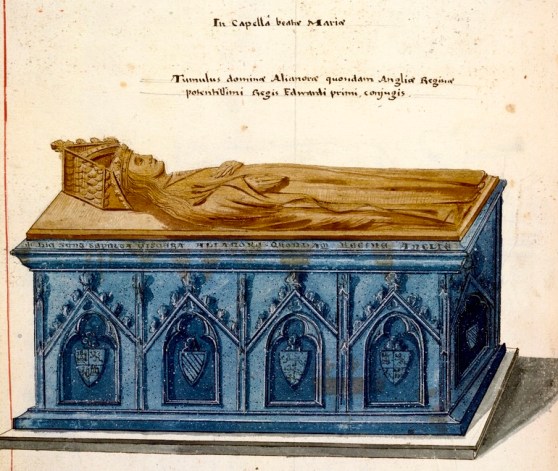 In Capella beatæ Mariæ
Tumulus dominæ Alianoræ quondam Angliæ Reginæ
potentissimi Regis Edwardi primi, conjugis
sunt viscera ALIANORE QUONDAM REGINE ANGLIE